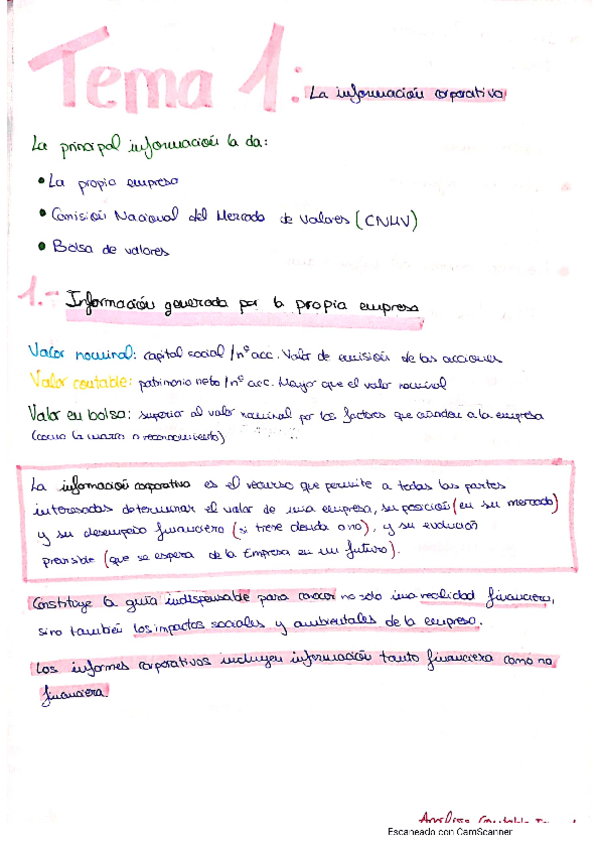 Tema 1: La información corporativa
La principal información la da:
• La propia empresa
• Comisión Nacional del Mercado de Valores (CNMV)
• Bolsa de valores
1.- Información generada por la propia empresa
Valor nominal: capital social / nº acc. Valor de emisión de las acciones
Valor contable: patrimonio neto / nº acc. Mayor que el valor nominal
Valor en bolsa: superior al valor nominal por los factores que a la empresa
(como la marca o reconocimiento)
La información corporativa es el recurso que permite a todas las partes
interesadas determinar el valor de una empresa, su posición (en su mercado)
y su desempeño financiero (si tiene deuda o no), y su evolución
previsible (que se espera de la Empresa en un futuro).
Constituye la guía indispensable para conocer no solo una realidad financiera,
sino también los impactos sociales y ambientales de la empresa.
Los informes corporativos incluyen información tanto financiera como no
financiera.
Escaneado con CamScanner